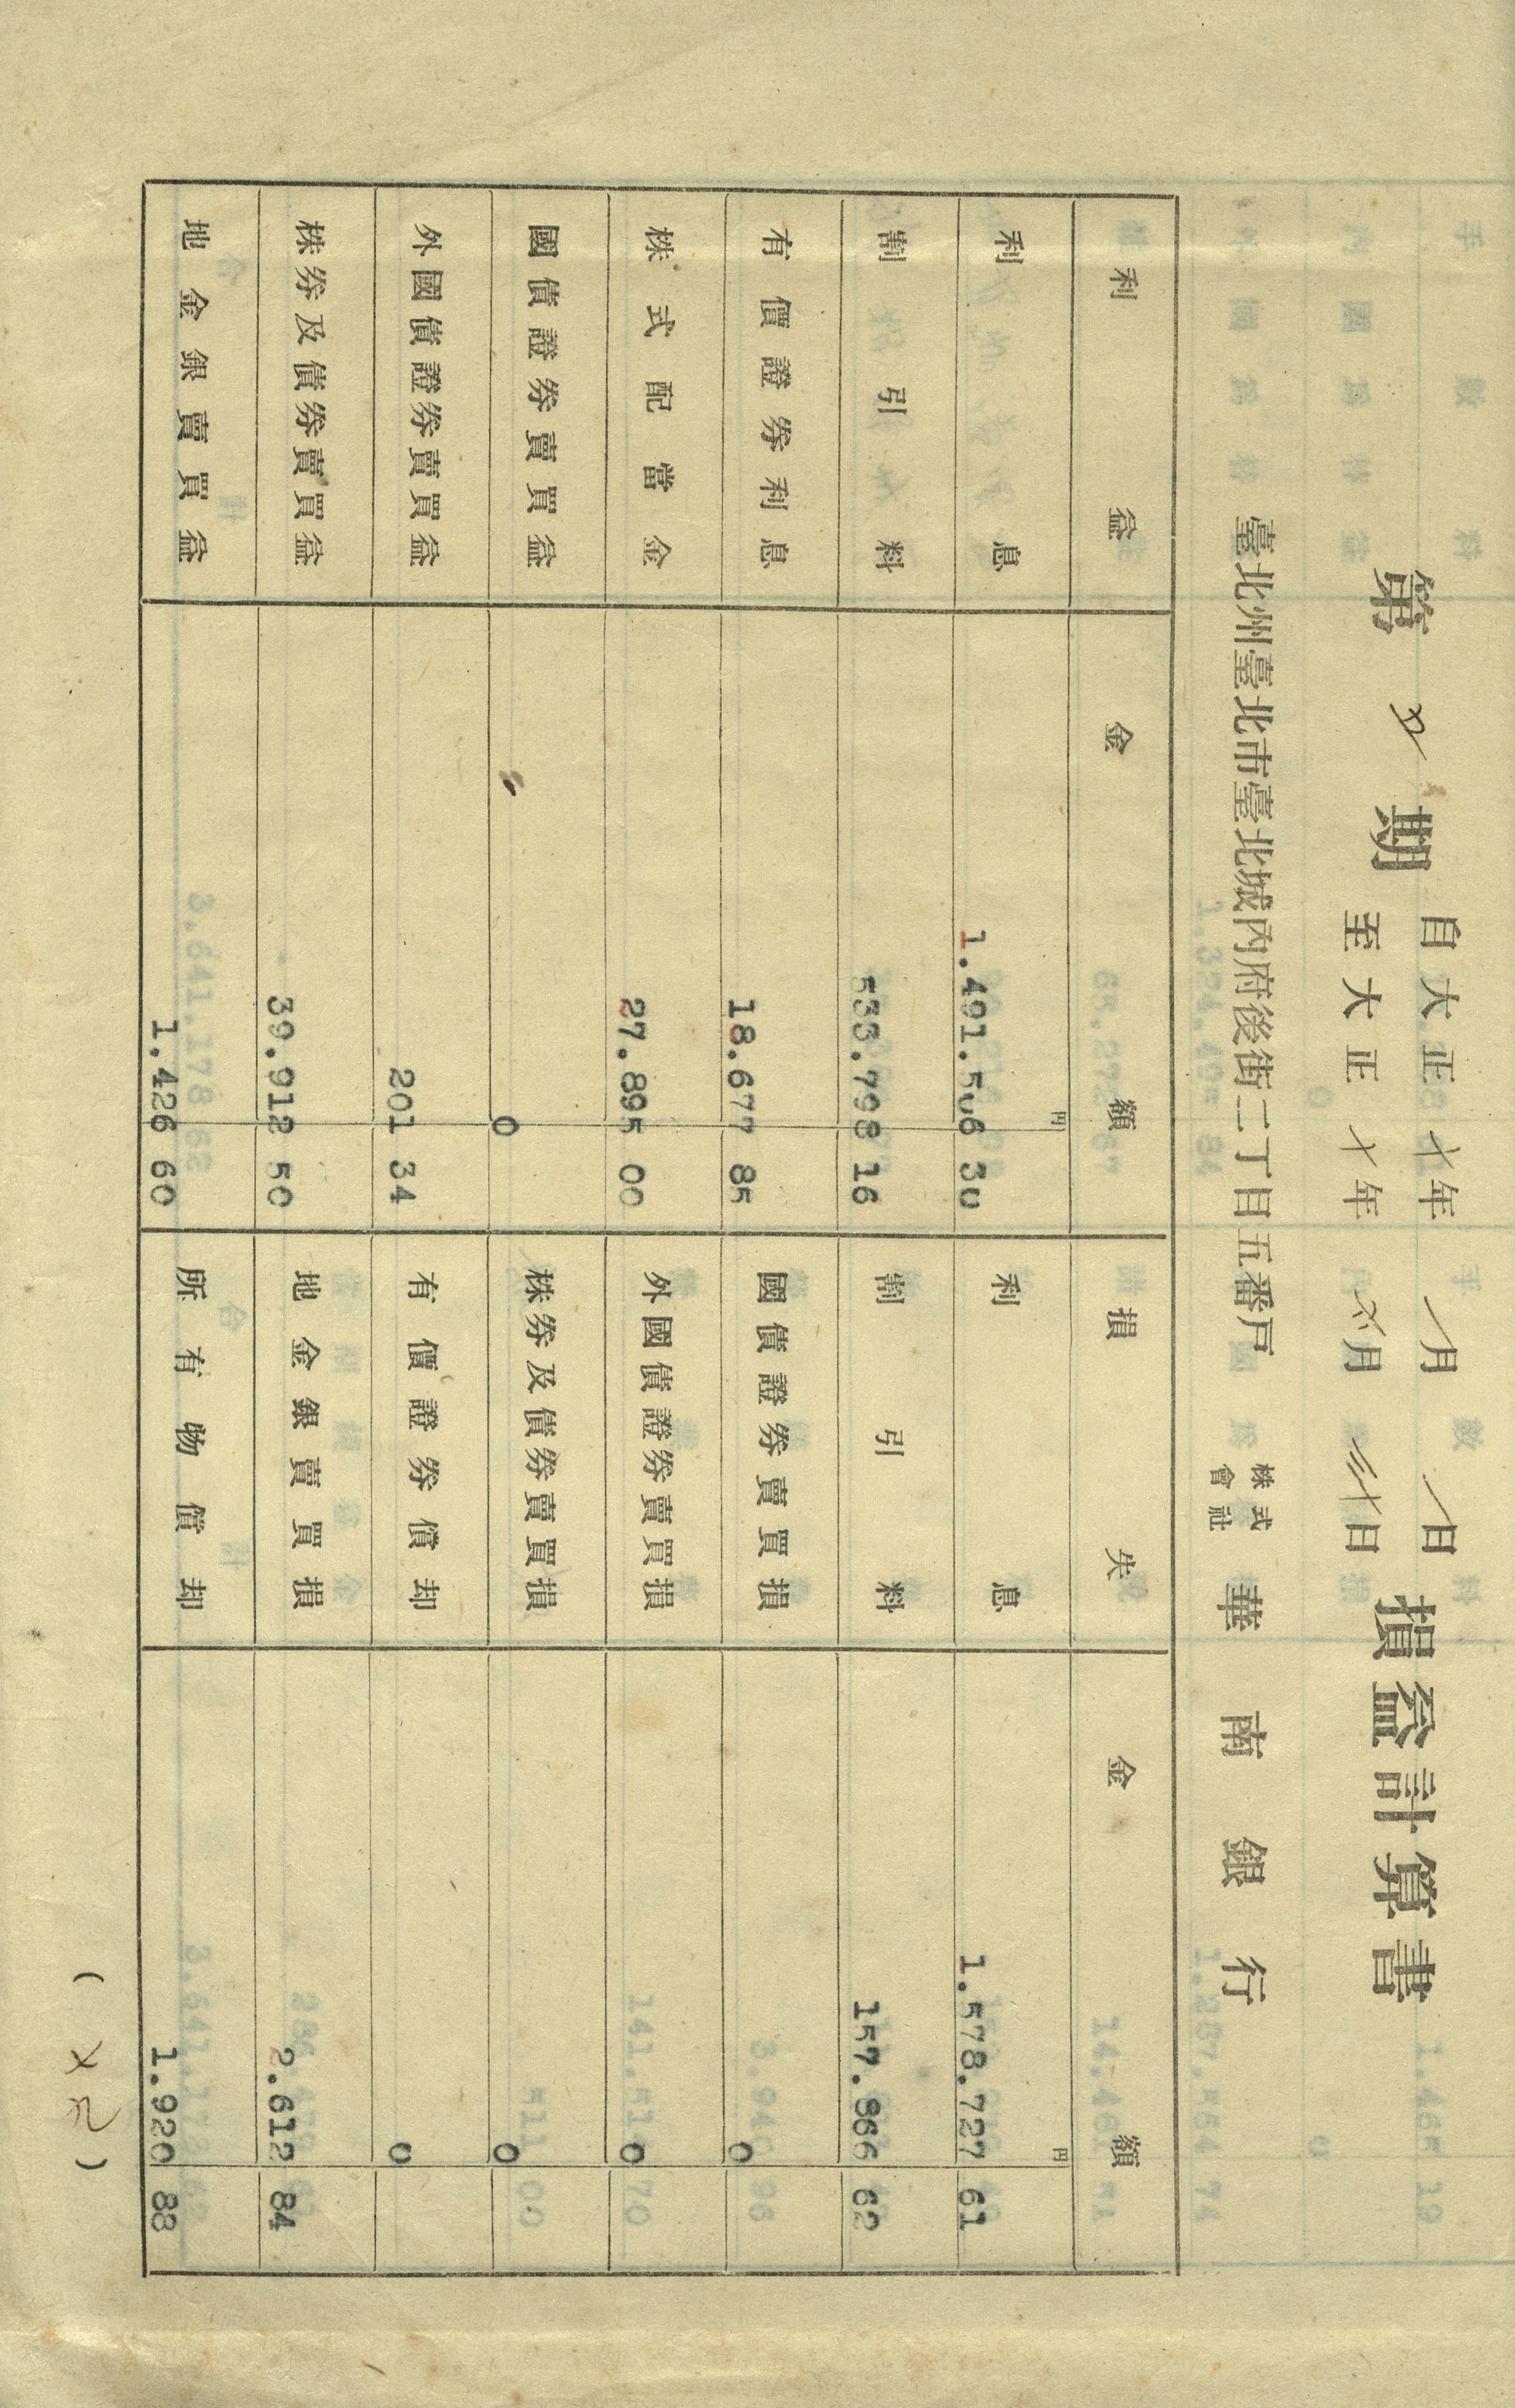 第五期 自大正十年一月一日 損益計算書
至大正十年六月三十日
臺北州臺北市臺北城內府後街二丁目五番戶 株式會社 華南銀行
利益 金額 損失 金額
円 円
利息 1.491.506 30 利息 1.578.727 61
割引料 533.798 16 割引料 157.866 62
有價證券利息 18.677 85 國債證券賣買損 0
株式配當金 27.895 00 外國債證券賣買損 0
國債證券賣買益 0 株券及債券賣買損 0
外國債證券賣買益 201 34 有價證券償却 0
株券及債券賣買益 39.912 50 地金銀賣買損 2.612 84
地金銀賣買益 1.426 60 所有物償却 1.920 88